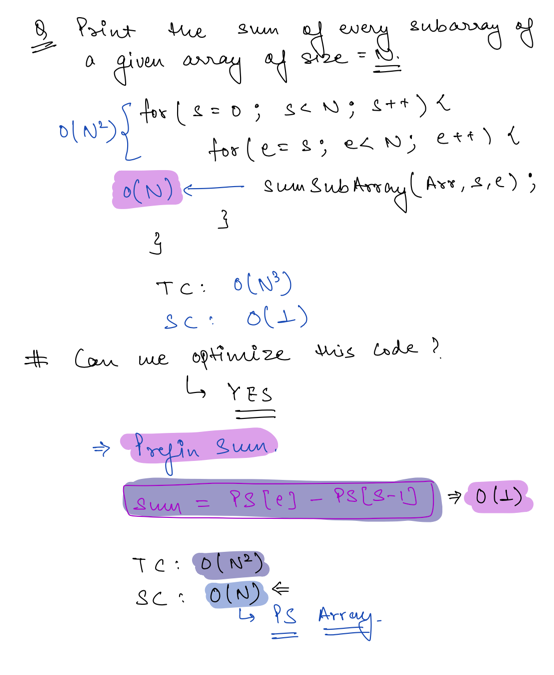 Q Print the sum of every subarray of
a given array of size = N.
O(N²) { for ( s = 0 ; s < N ; s++ ) {
for ( e = s ; e < N ; e++ ) {
O(N) ← sumSubArray(Arr, s, e) ;
}
}
TC : O(N³)
SC : O(1)
# Can we optimize this code ?
↳ YES
⇒ Prefix Sum.
Sum = PS[e] - PS[s-1] ⇒ O(1)
TC : O(N²)
SC : O(N) ⇐
↳ PS Array.